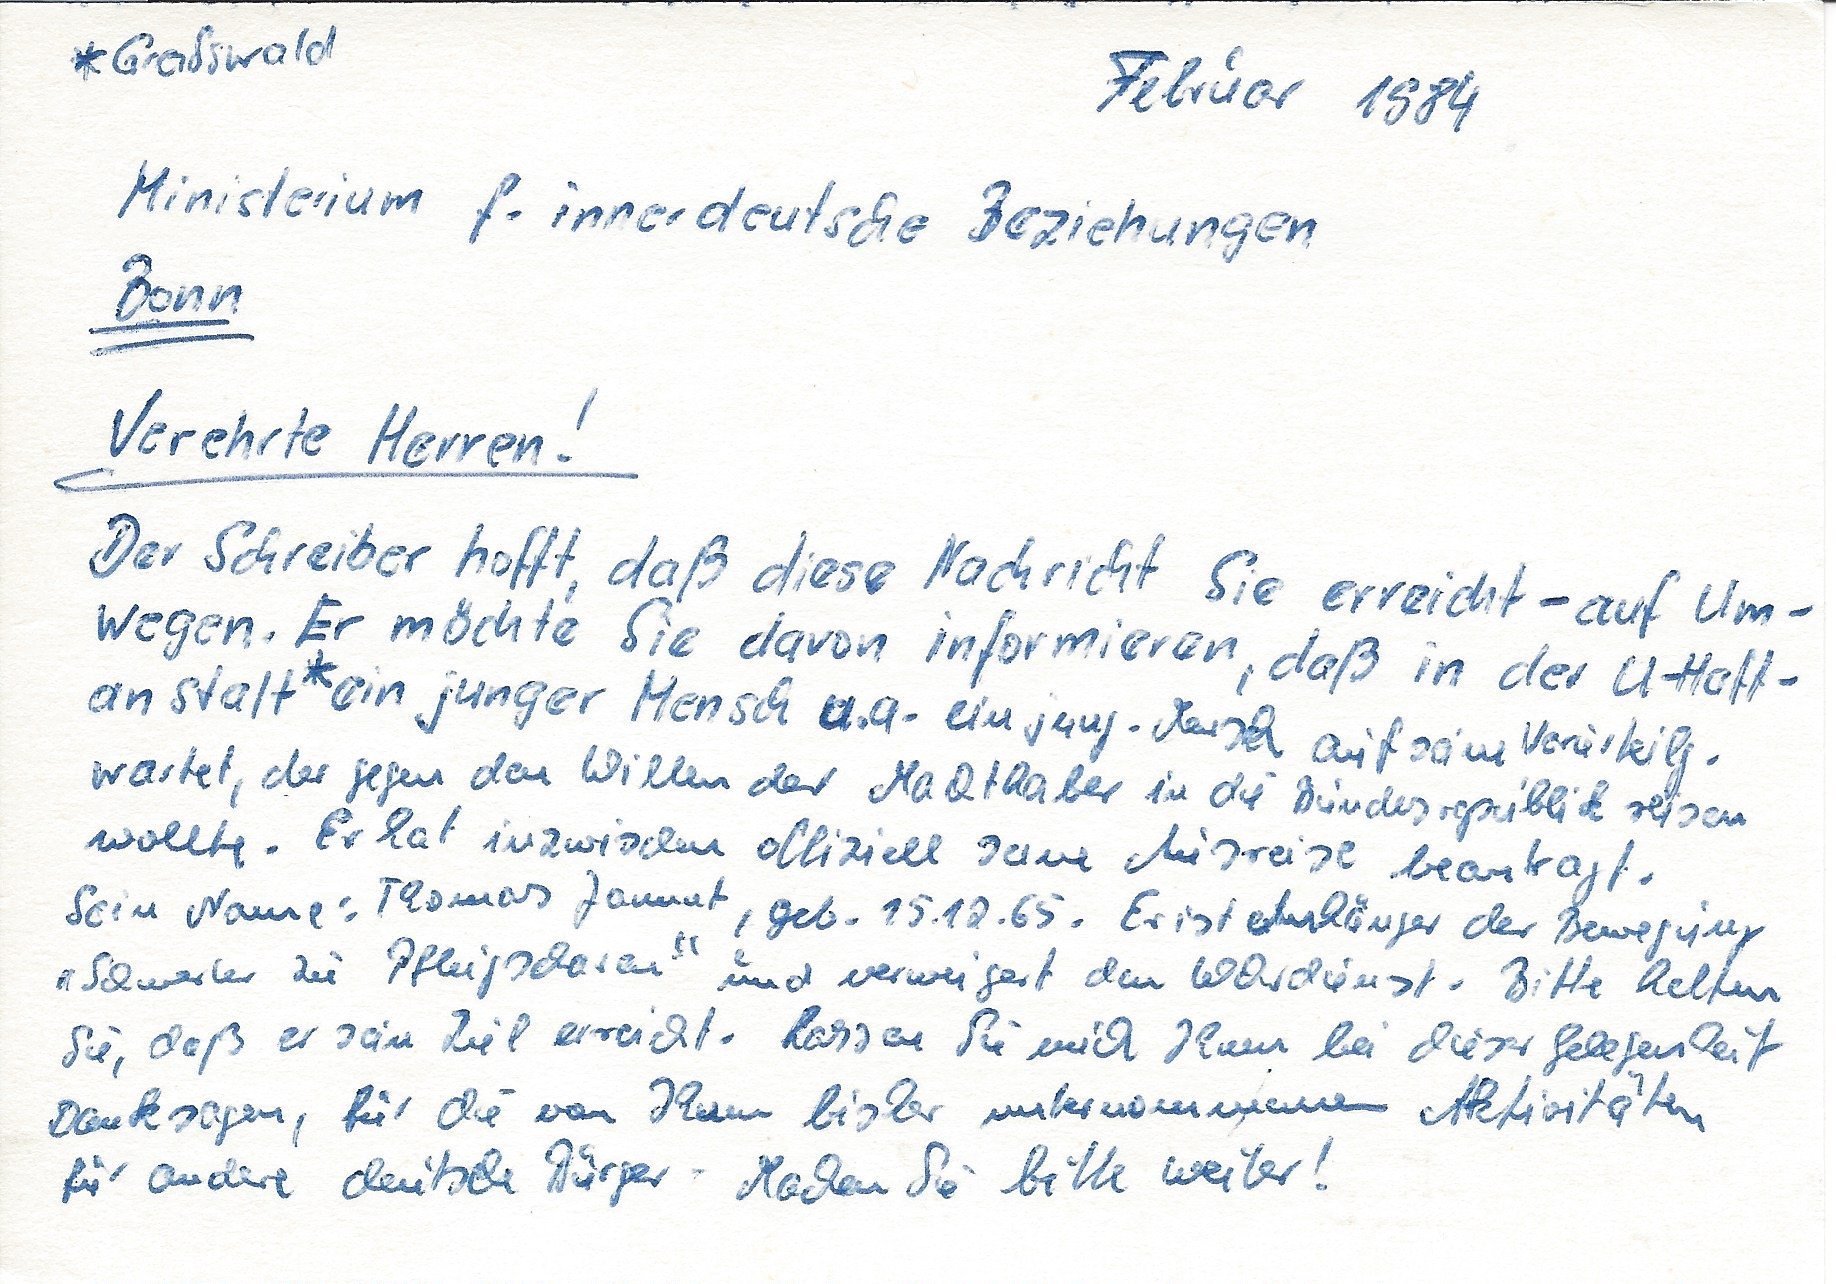 *Greifswald
Februar 1984
Ministerium f. innerdeutsche Beziehungen
Bonn
Verehrte Herren!
Der Schreiber hofft, daß diese Nachricht Sie erreicht - auf Um-
wegen. Er möchte Sie davon informieren, daß in der U-Haft-
anstalt * ein junger Mensch u.a. ein jung. Mensch auf seine Verurteilg.
wartet, der gegen den Willen der Machthaber in die Bundesrepublik reisen
wollte. Er hat inzwischen offiziell seine Ausreise beantragt.
Sein Name: Thomas, geb. 15.12.65. Er ist Anhänger der Bewegung
"Schwerter zu Pflugscharen" und verweigert den Wehrdienst. Bitte helfen
Sie, daß er sein Ziel erreicht. Lassen Sie mich Ihnen bei dieser Gelegenheit
Dank sagen, für die von Ihnen bisher unternommenen Aktivitäten
für andere deutsche Bürger. Machen Sie bitte weiter!